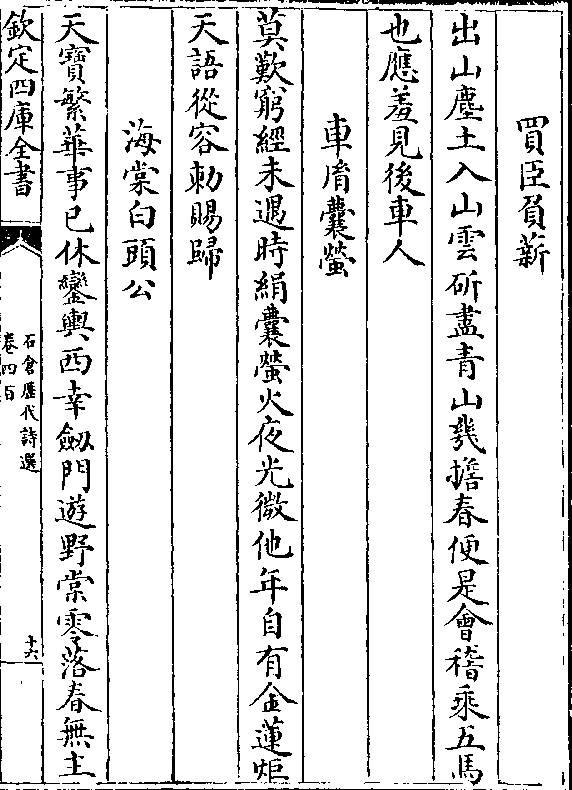 買臣負薪
出山塵土入山雲斫盡青山幾擔春便是會稽乘五馬
也應羞見後車人
車胤囊螢
莫歎窮經未遇時絹囊螢火夜光微他年自有金蓮炬
天語從容勅賜歸
海棠白頭公
天寶繁華事已休鑾輿西幸劔門遊野棠零落春無主
欽定四庫全書
石倉歷代詩選
卷四百
十六